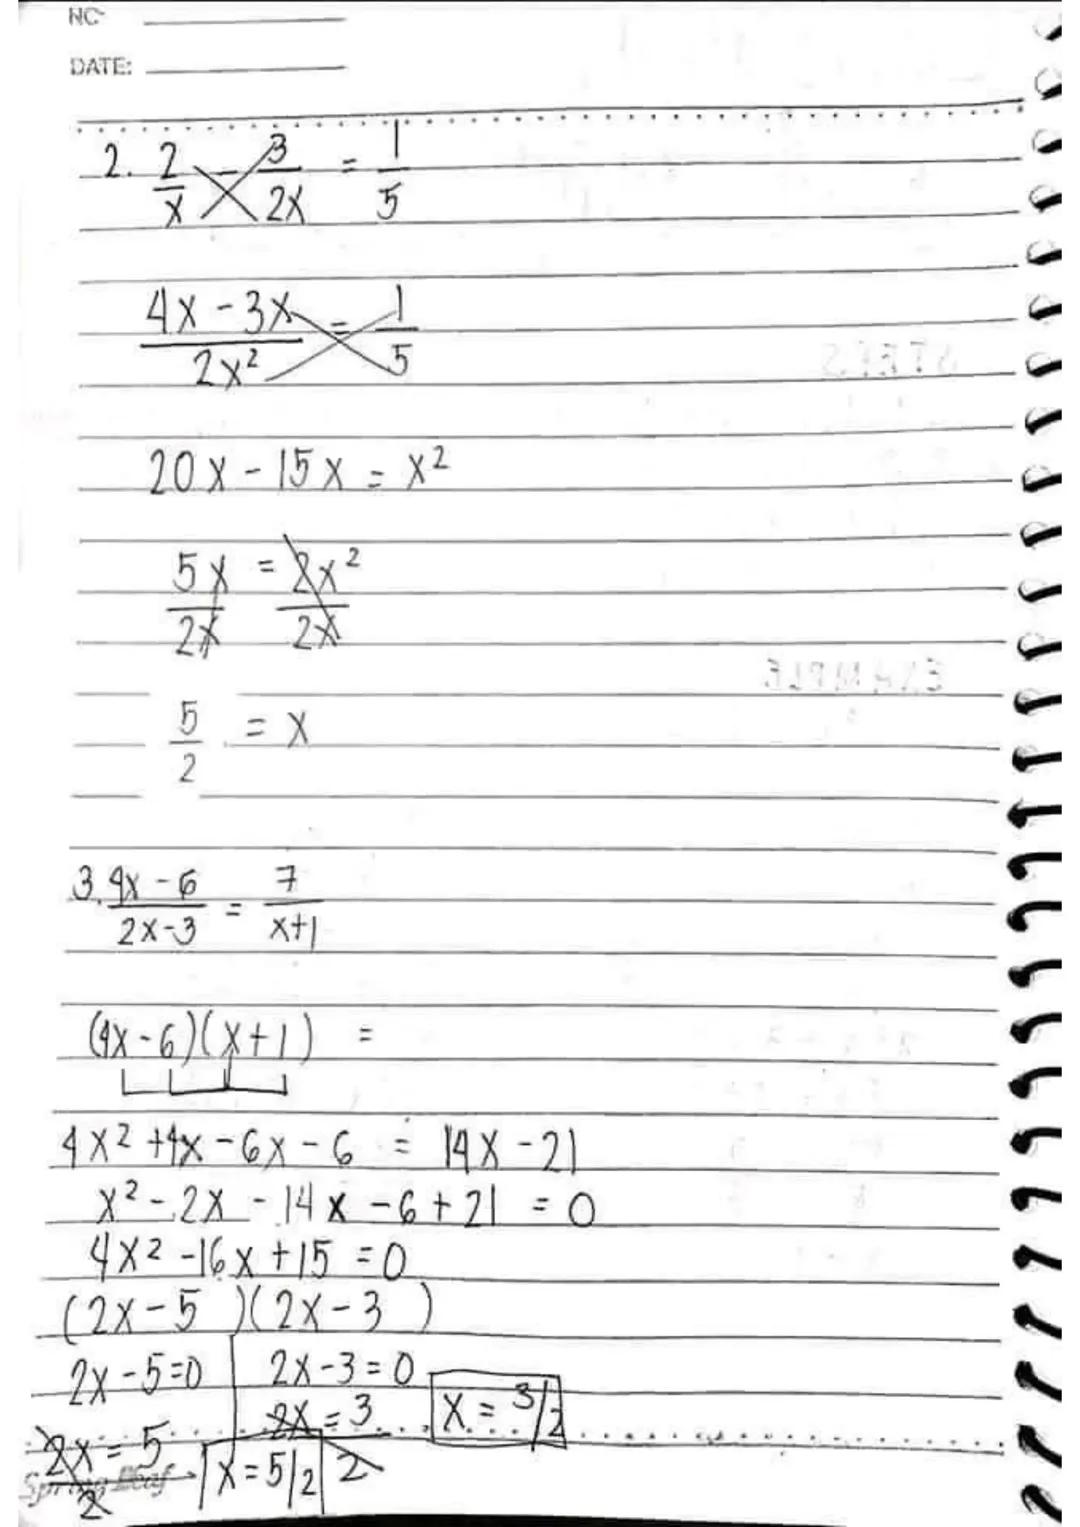 NO
DATE:
2. 2/x - 3/2x = 1/5
4x - 3x / 2x² = 1/5
20x - 15x = x²
5x/2x = 2x²/2x
5/2 = x
3. 4x - 6 / 2x - 3 = 7 / x+1
(4x - 6)(x + 1) =
4x² + 4x - 6x - 6 = 14x - 21
x² - 2x - 14x - 6 + 21 = 0
4x² - 16x + 15 = 0
(2x - 5 )(2x - 3 )
2x - 5 = 0 2x - 3 = 0 x = 3/2
2x = 3 / 2
2x = 5 / 2 x = 5/2
Spring Leaf